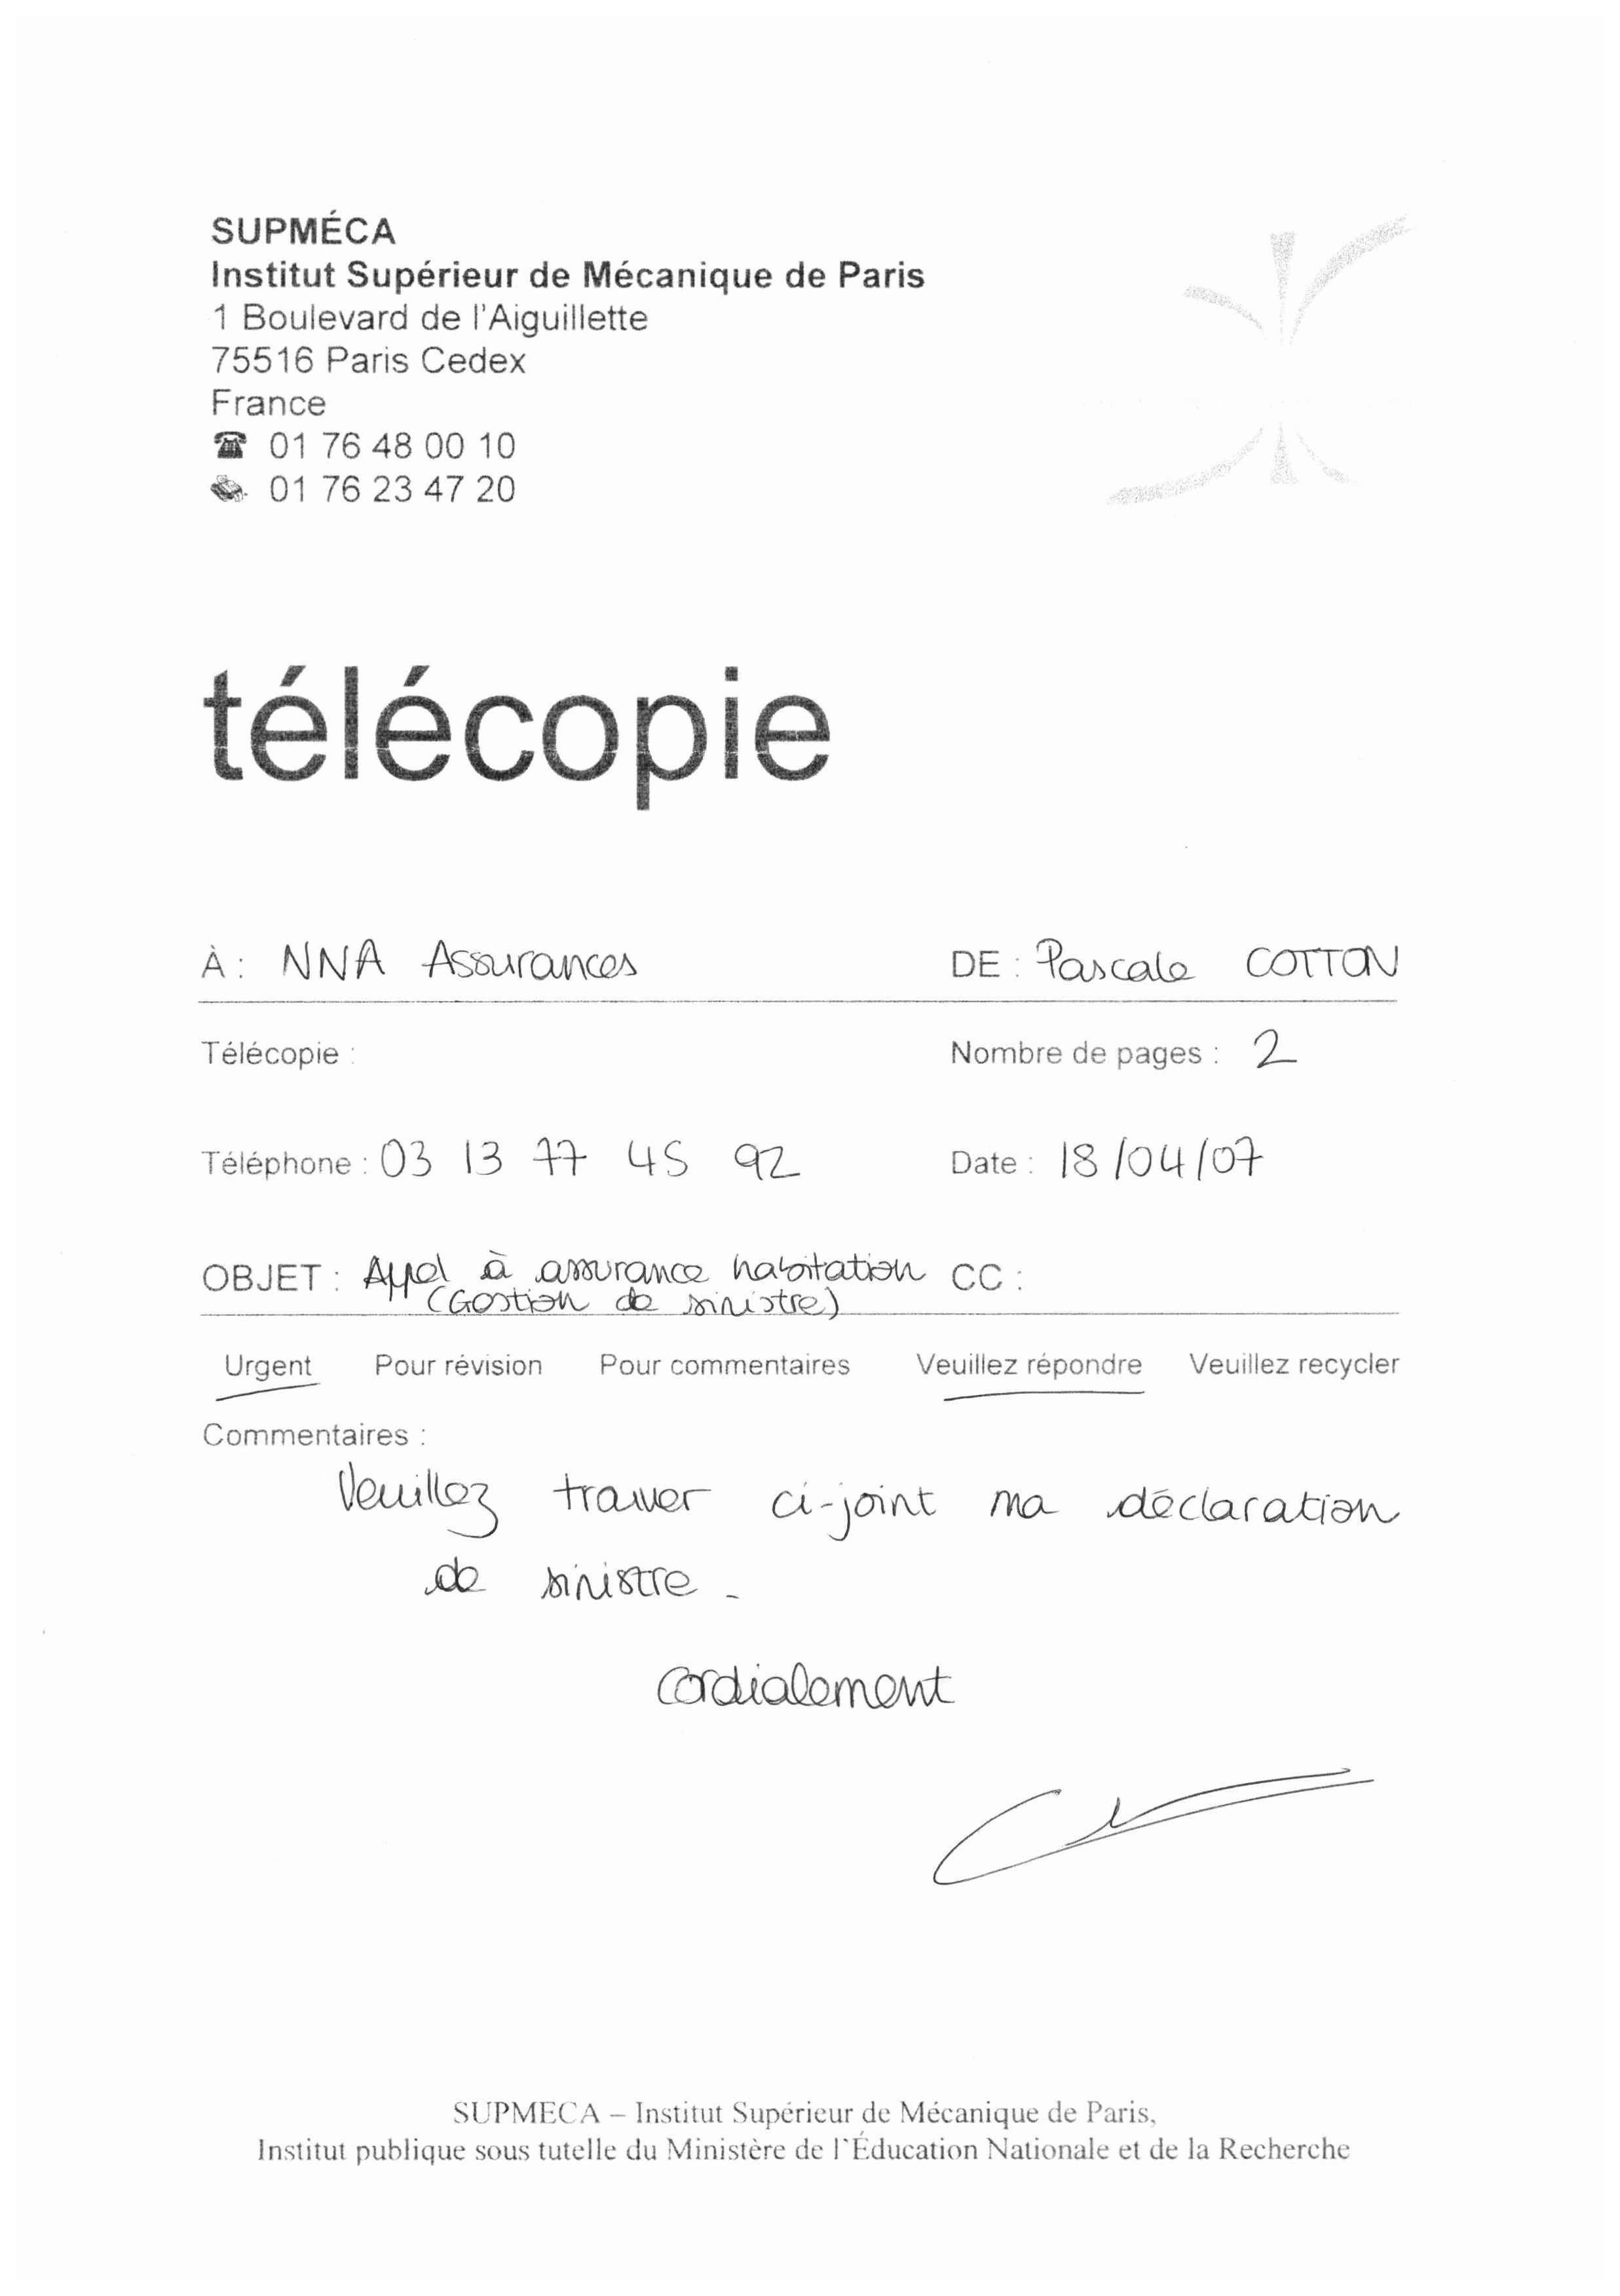 SUPMÉCA
Institut Supérieur de Mécanique de Paris
1 Boulevard de l'Aiguillette
75516 Paris Cedex
France
☎ 01 76 48 00 10
01 76 23 47 20
télécopie
À : NNA Assurances DE : Pascale COTTON
Télécopie : Nombre de pages : 2
Téléphone : 03 13 77 45 92 Date : 18/04/07
OBJET : Appel à assurance habitation CC :
(Gestion de sinistre)
Urgent Pour révision Pour commentaires Veuillez répondre Veuillez recycler
Commentaires :
Veuillez trouver ci-joint ma déclaration
de sinistre.
Cordialement
SUPMECA – Institut Supérieur de Mécanique de Paris,
Institut publique sous tutelle du Ministère de l'Éducation Nationale et de la Recherche